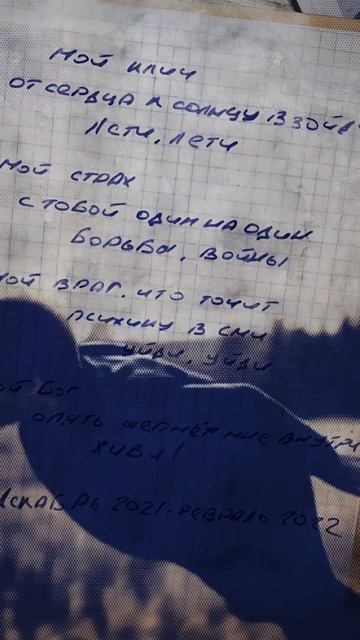 Мой клич
от сердца к солнцу взойд
Лети, лети
Мой страх
с тобой один на один
Борьбы, войны
мой враг, что точит
психику в сми
уйди, уйди
ой Бог
опять шепнёт мне внутри
живи!
декабрь 2021-февраль 2022